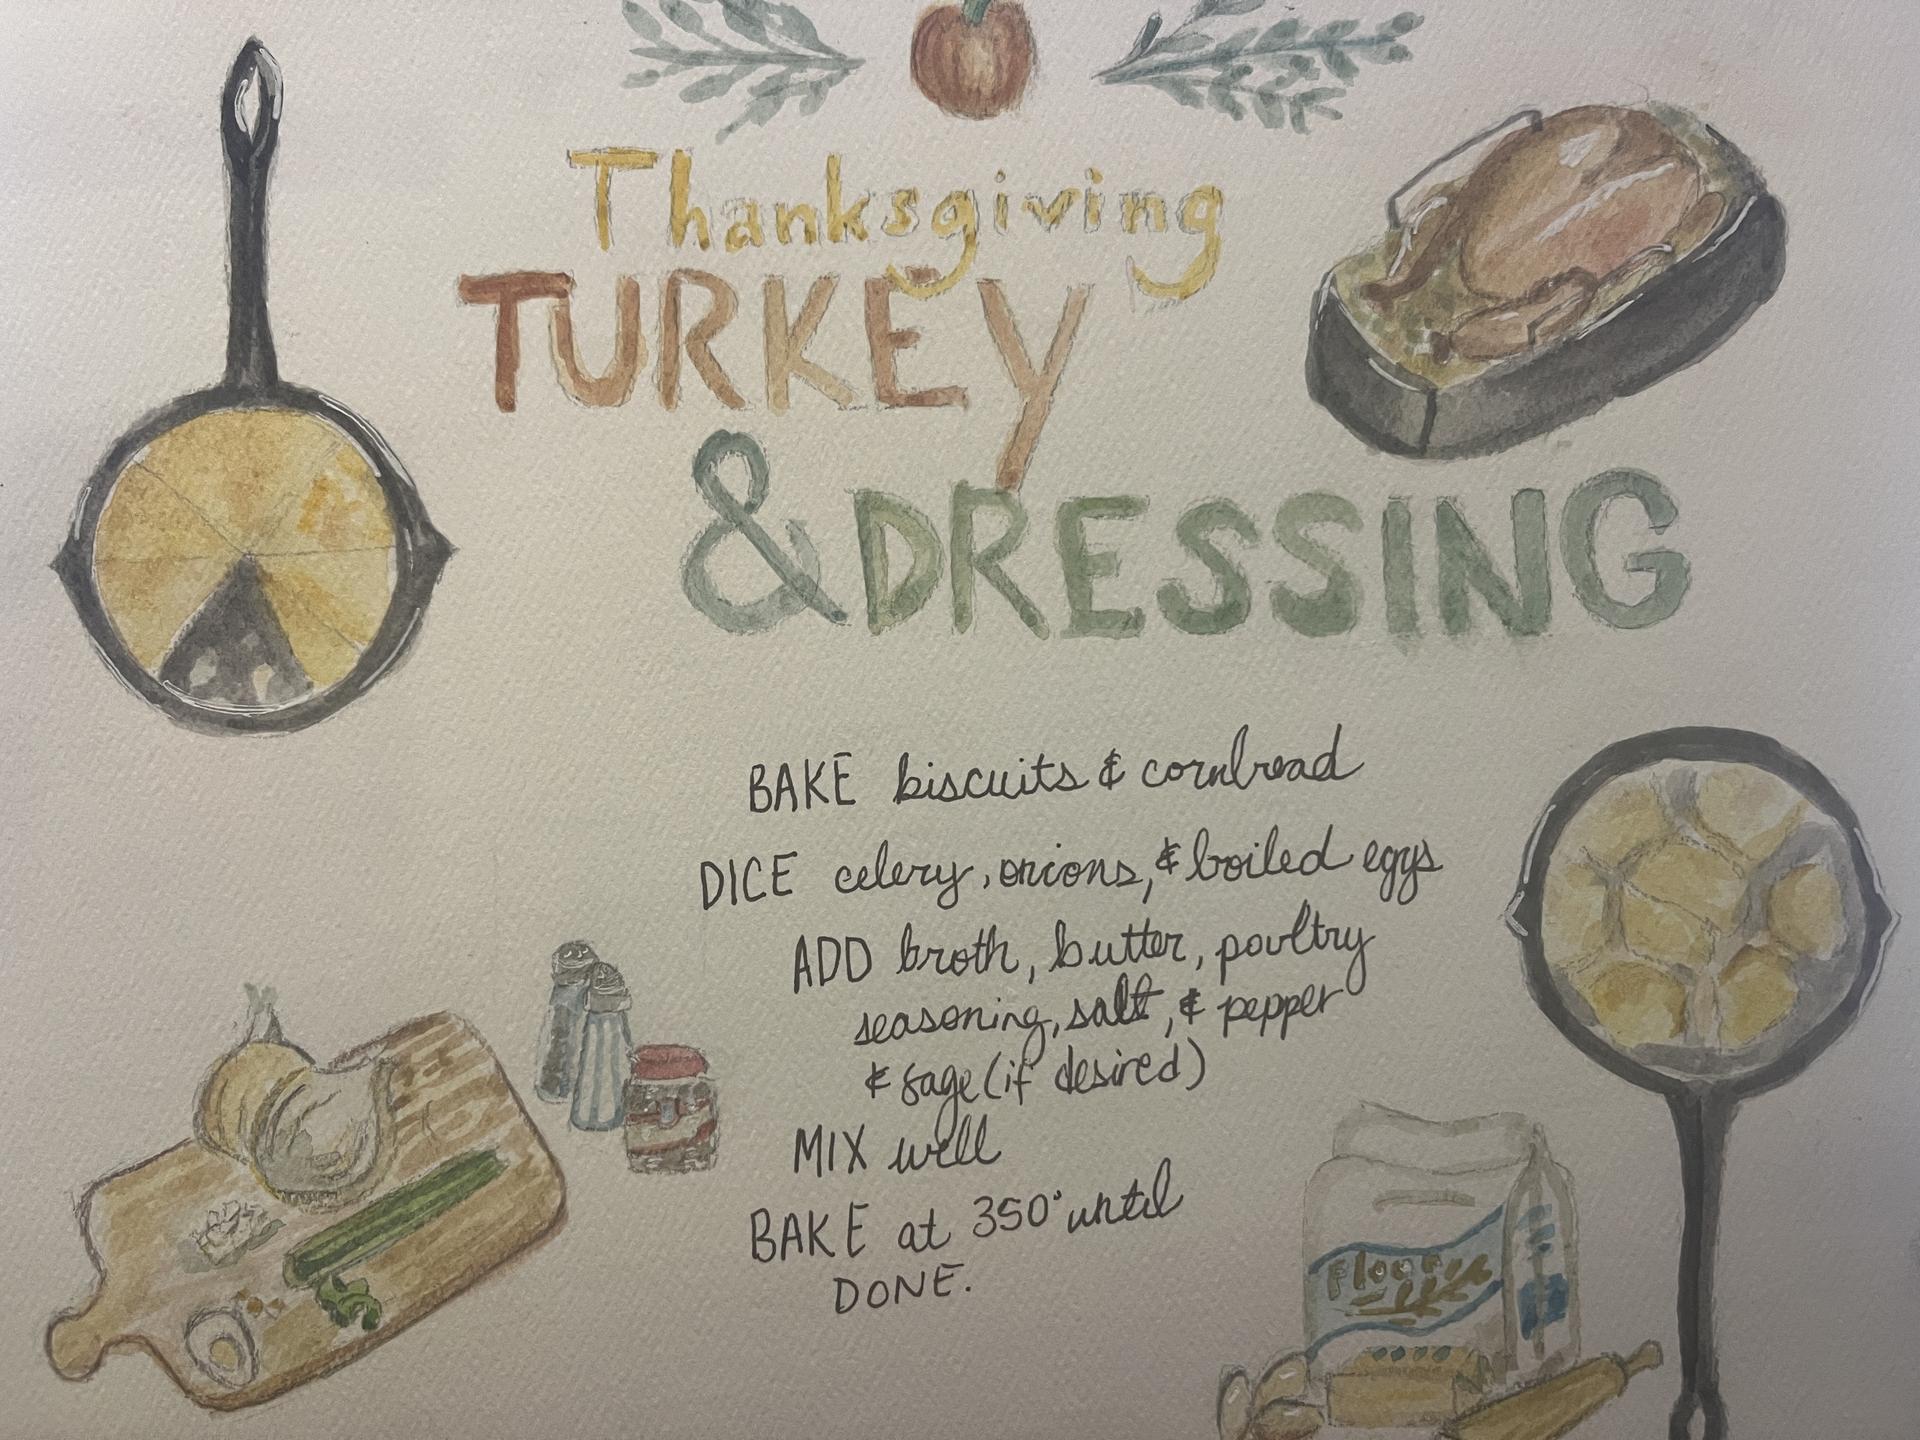 Thanksgiving
TURKEY
& DRESSING
BAKE biscuits & cornbread
DICE celery, onions, & boiled eggs
ADD broth, butter, poultry
seasoning, salt, & pepper
& sage (if desired)
MIX well
BAKE at 350° until
DONE.
flour